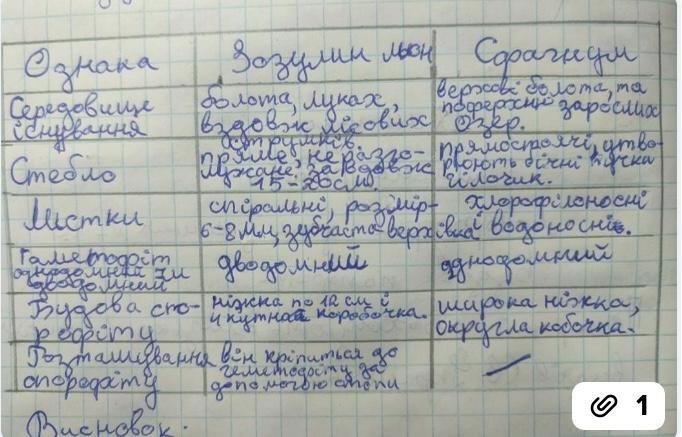 Ознака Зозулин льон Сфагнум
Середовище
існування
болота, луках,
вздовж лісових
струмків.
верхові болота, та
поверхню зарослих
озер.
Стебло
пряме, не разго-
лужане, завдовж
15-20см.
прямостоячі, утво-
рюють бічні пучка
гілочик.
Листки
спіральні, розмір-
6-8мм, зубчаста верхівка
хлорофілоносні
і водоносні.
Гаметофіт
однодомний чи
дводомний
дводомний
однодомний
Будова спо-
рофіту
ніжка по 12 см і
4 кутная коробочка.
широка ніжка,
округла кобочка.
Розташування
спорофіту
він кріпиться до
геметофіту за
допомогою стопи
—
Висновок.
1